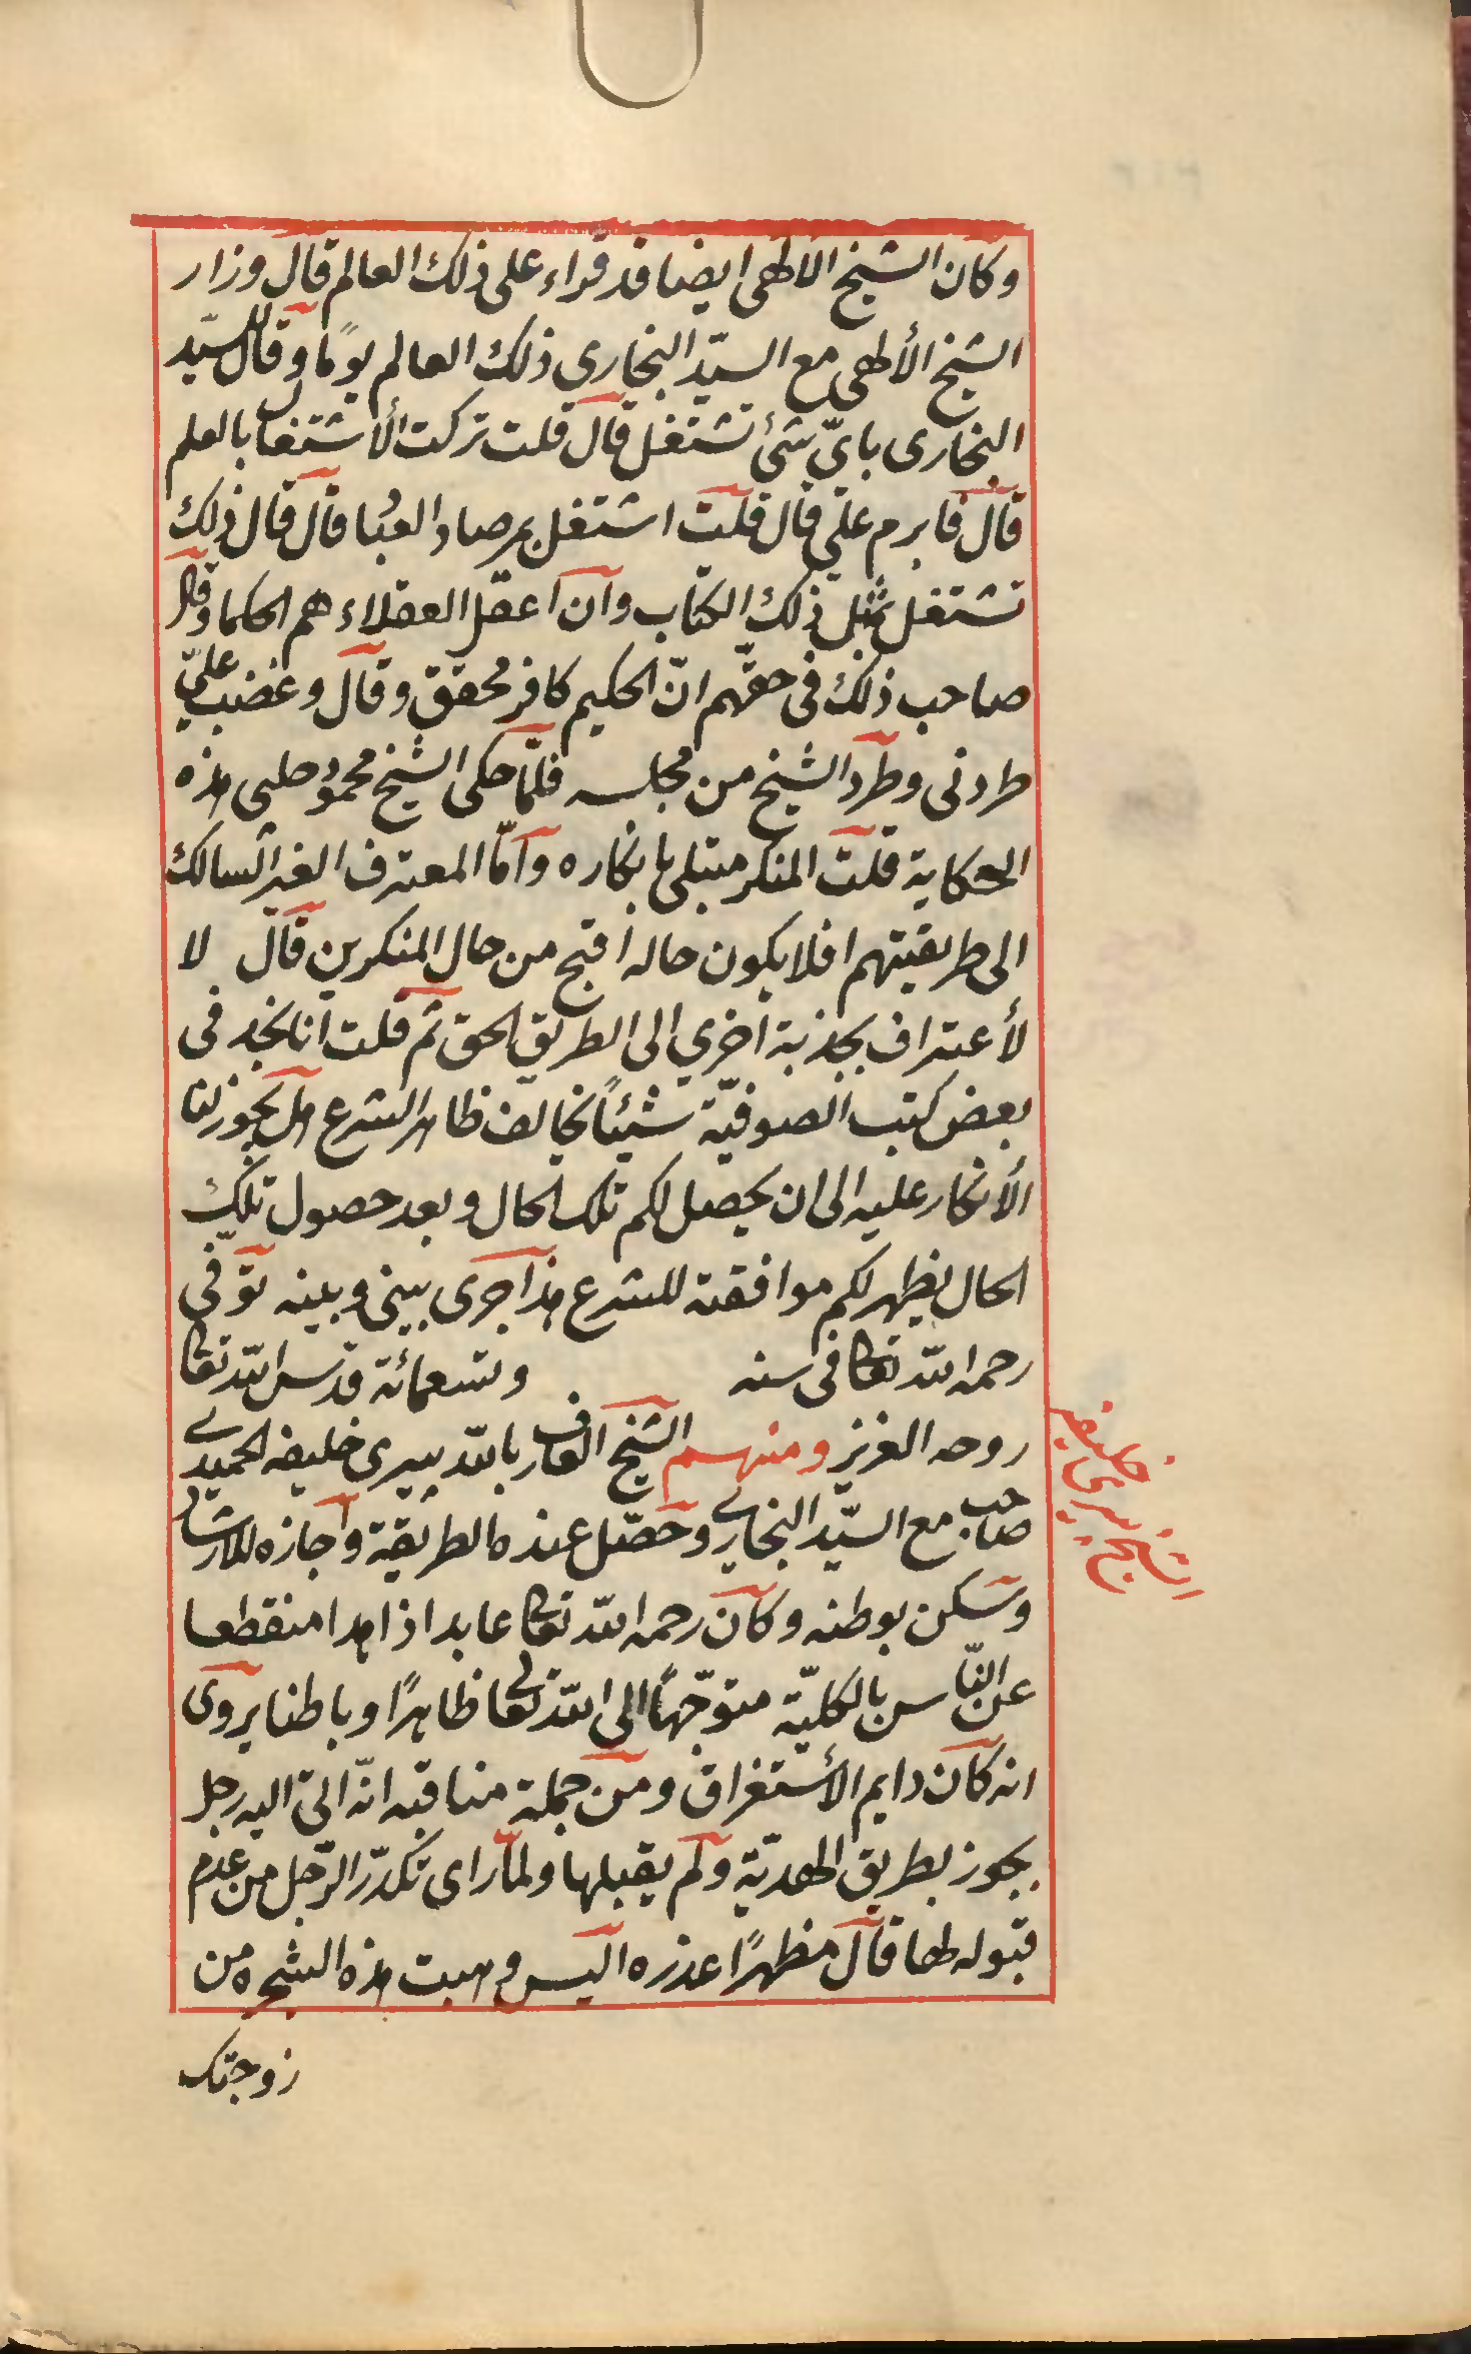 وكان الشيخ الالهى ايضا قد قراء على ذلك العالم قال وزار
الشيخ الألهى مع السيّد البخاري ذلك العالم يومًا وقال للسيّد
البخارى بايّ شئ تشتغل قال قلت تركت الأشتغال بالعلم
قال فابرم عليّ قال قلت اشتغل بمرصاد العبُاد قال قال ذلك
تشتغل بمثل ذلك الكتاب وان اعقل العقلاء هم الحكما وقال
صاحب ذلك فى حقّهم انّ الحكيم كافر محقق وقال وغضب عليّ
طردنى وطرد الشيخ من مجلسه فلمّا حكى الشيخ محمود چلبى هذه
الحكاية قلت المنكر مبتلى بانكاره وامّا المعترف الغير السالك
الى طريقتهم افلا يكون حاله اقبح من حال المنكرين قال لا
لأعتراف بجذبة اخري الى الطريق الحق ثم قلت انا نجد فى
بعض كتب الصوفيّة شيئًا يخالف ظاهر الشرع هل يجوز لنا
الأنكار عليه الى ان يحصل لكم تلك الحال وبعد حصول تلك
الحال يظهر لكم موافقته للشرع هذا جرى بينى وبينه توّفى
رحمه الله تعالى فى سنه وتسعمائة قدس الله تعالى
روحه العزيز ومنهم الشيخ العارف بالله پيرى خليفه الحميدى
صاحب مع السيّد البخاري وحصّل عنده الطريقة واجازه للارشاد
وسكن بوطنه وكان رحمه الله تعالى عابدا زاهدا منقطعا
عن النّاس بالكليّة متوجّهًا الى الله تعالى ظاهرًا وباطنا يروى
انه كان دايم الأستغراق ومن جملة مناقبه انّه اتى اليه رجل
بجوز بطريق الهديّة ولم يقبلها ولمّا راى تكدّر الرّجل من عدم
قبوله لها قال مظهرًا عذره اليس وهبت هذه الشجره من
زوجتك
الشيخ پيرى خليفه